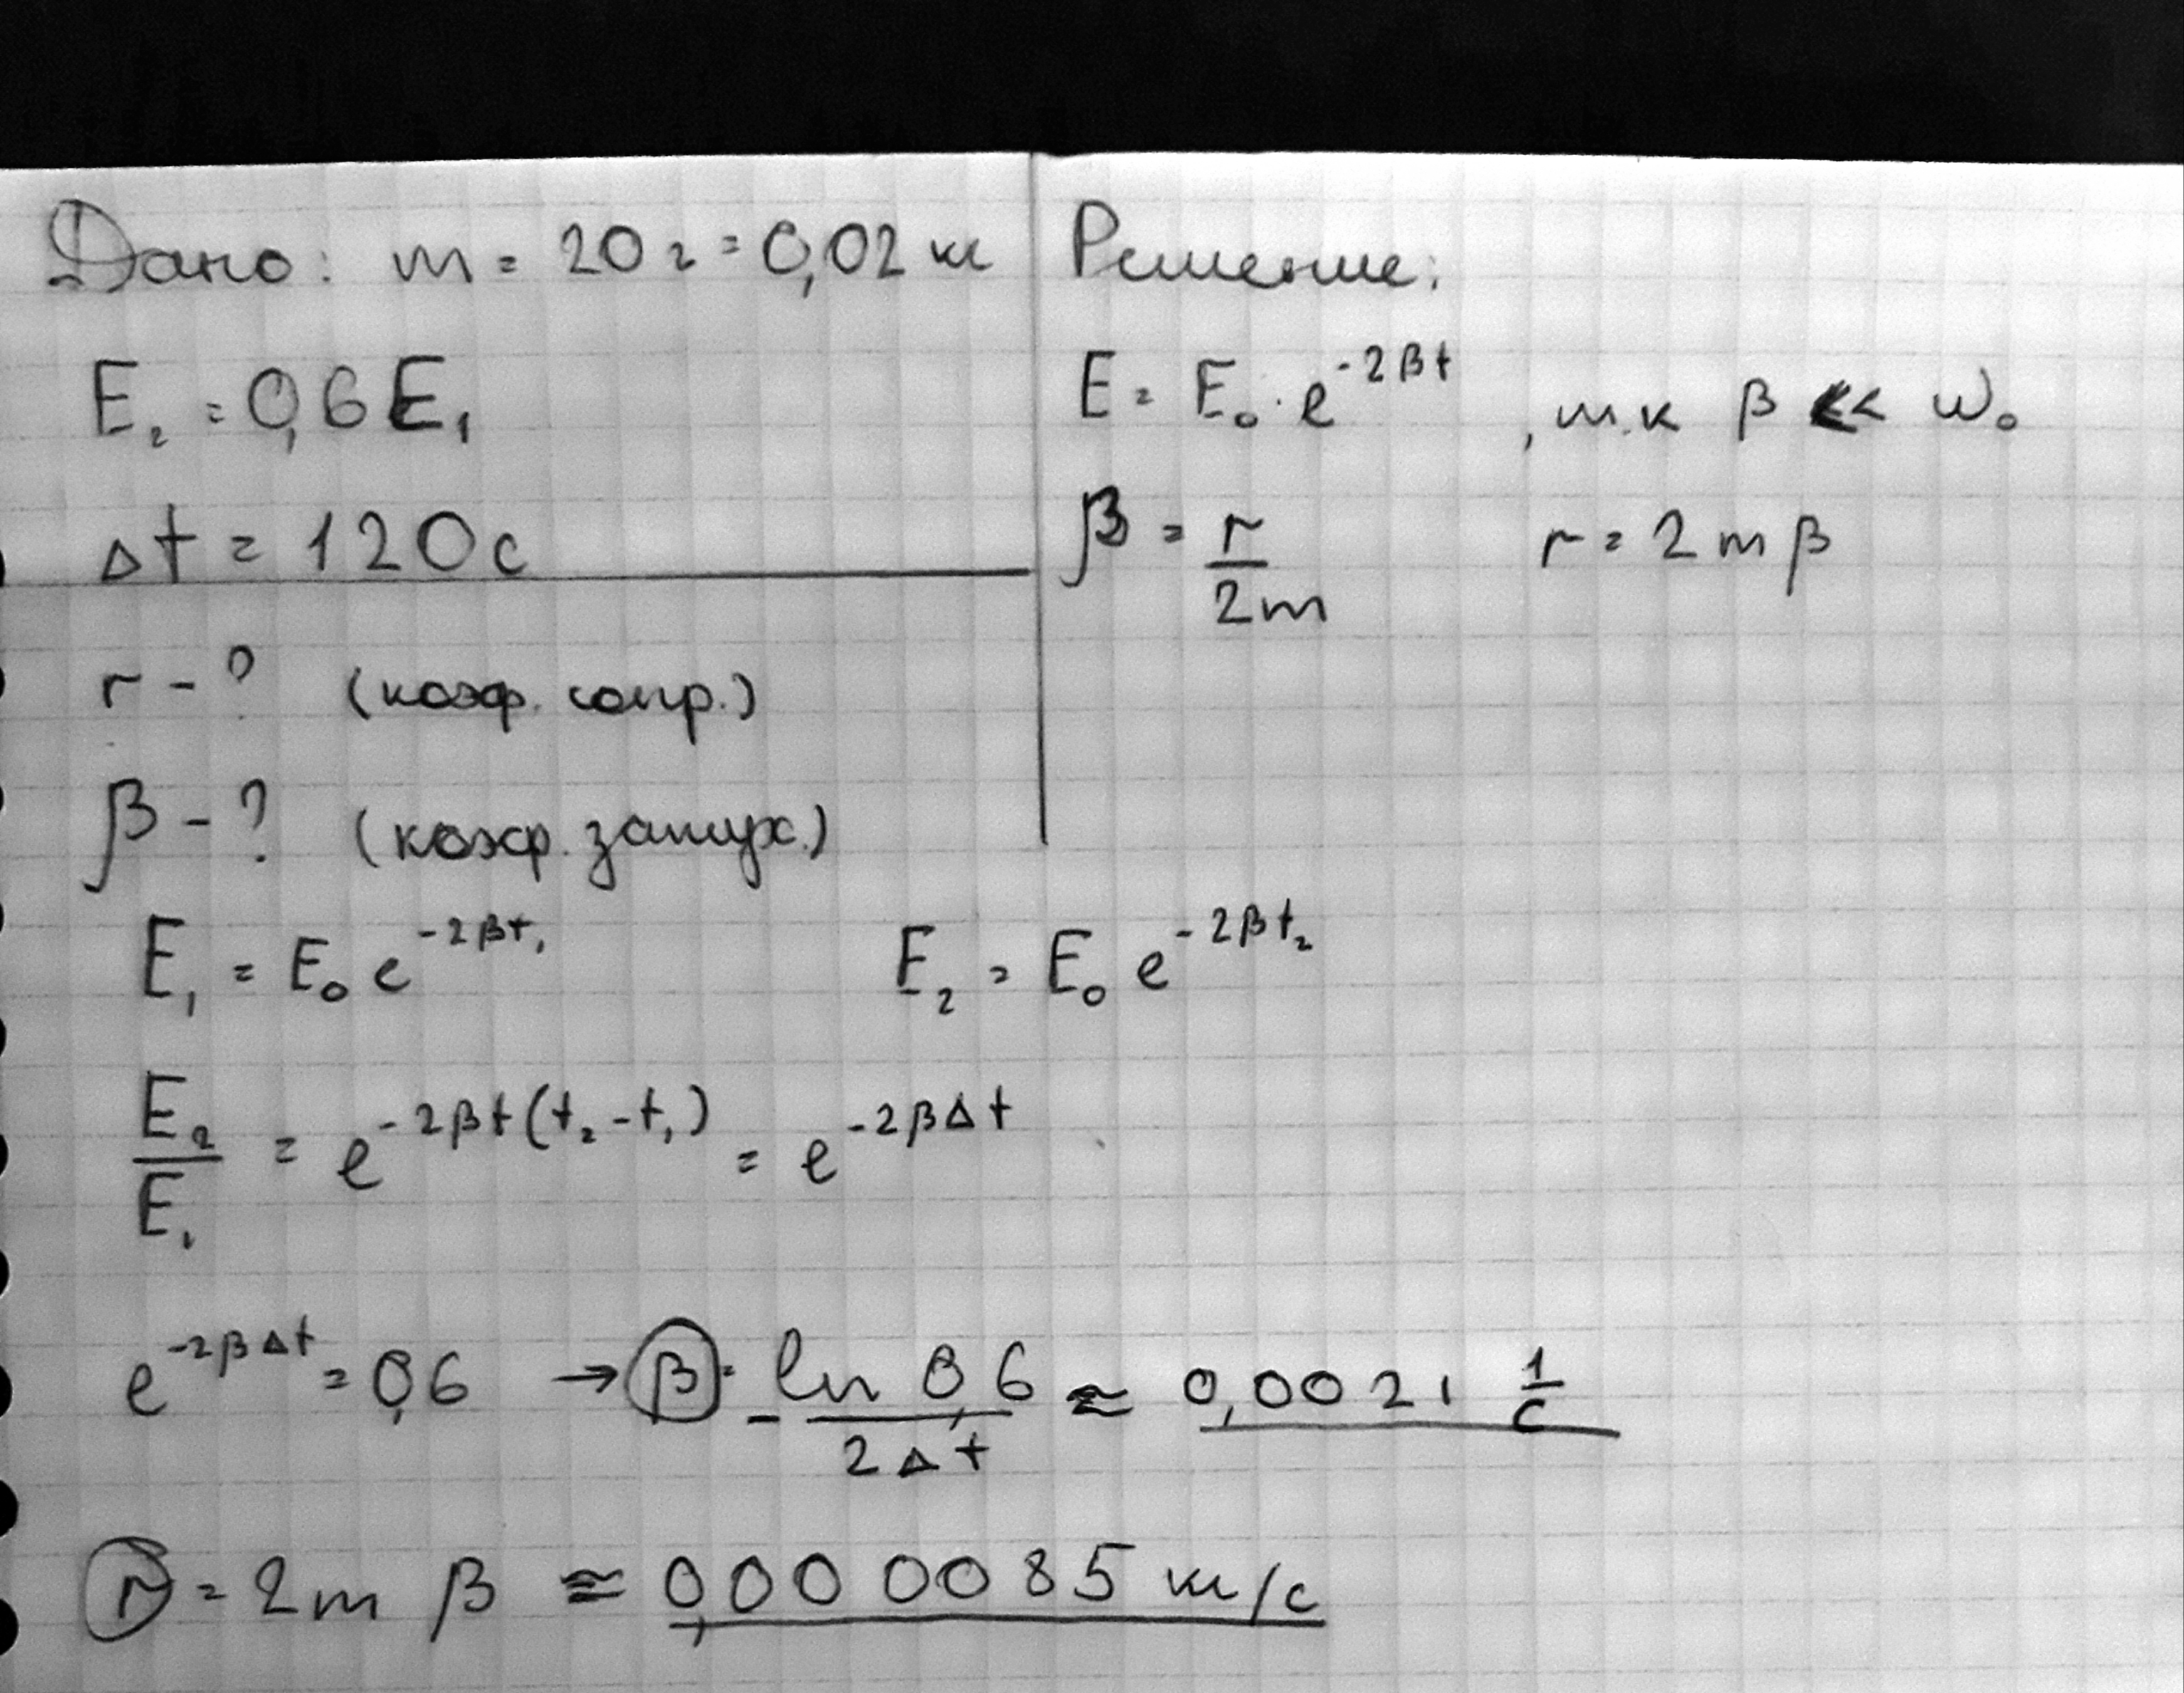 Дано: m = 20 г = 0,02 кг
E₂ = 0,6 E₁
Δt = 120 с
r - ? (коэф. сопр.)
β - ? (коэф. затух.)
Решение:
E = E₀ · e^(-2βt) , т.к β << ω₀
β = r/2m r = 2mβ
E₁ = E₀ e^(-2βt₁) E₂ = E₀ e^(-2βt₂)
E₂/E₁ = e^(-2βt(t₂-t₁)) = e^(-2βΔt)
e^(-2βΔt) = 0,6 → β = - ln 0,6 / 2Δt ≈ 0,0021 1/с
r = 2m β ≈ 0,000085 кг/с